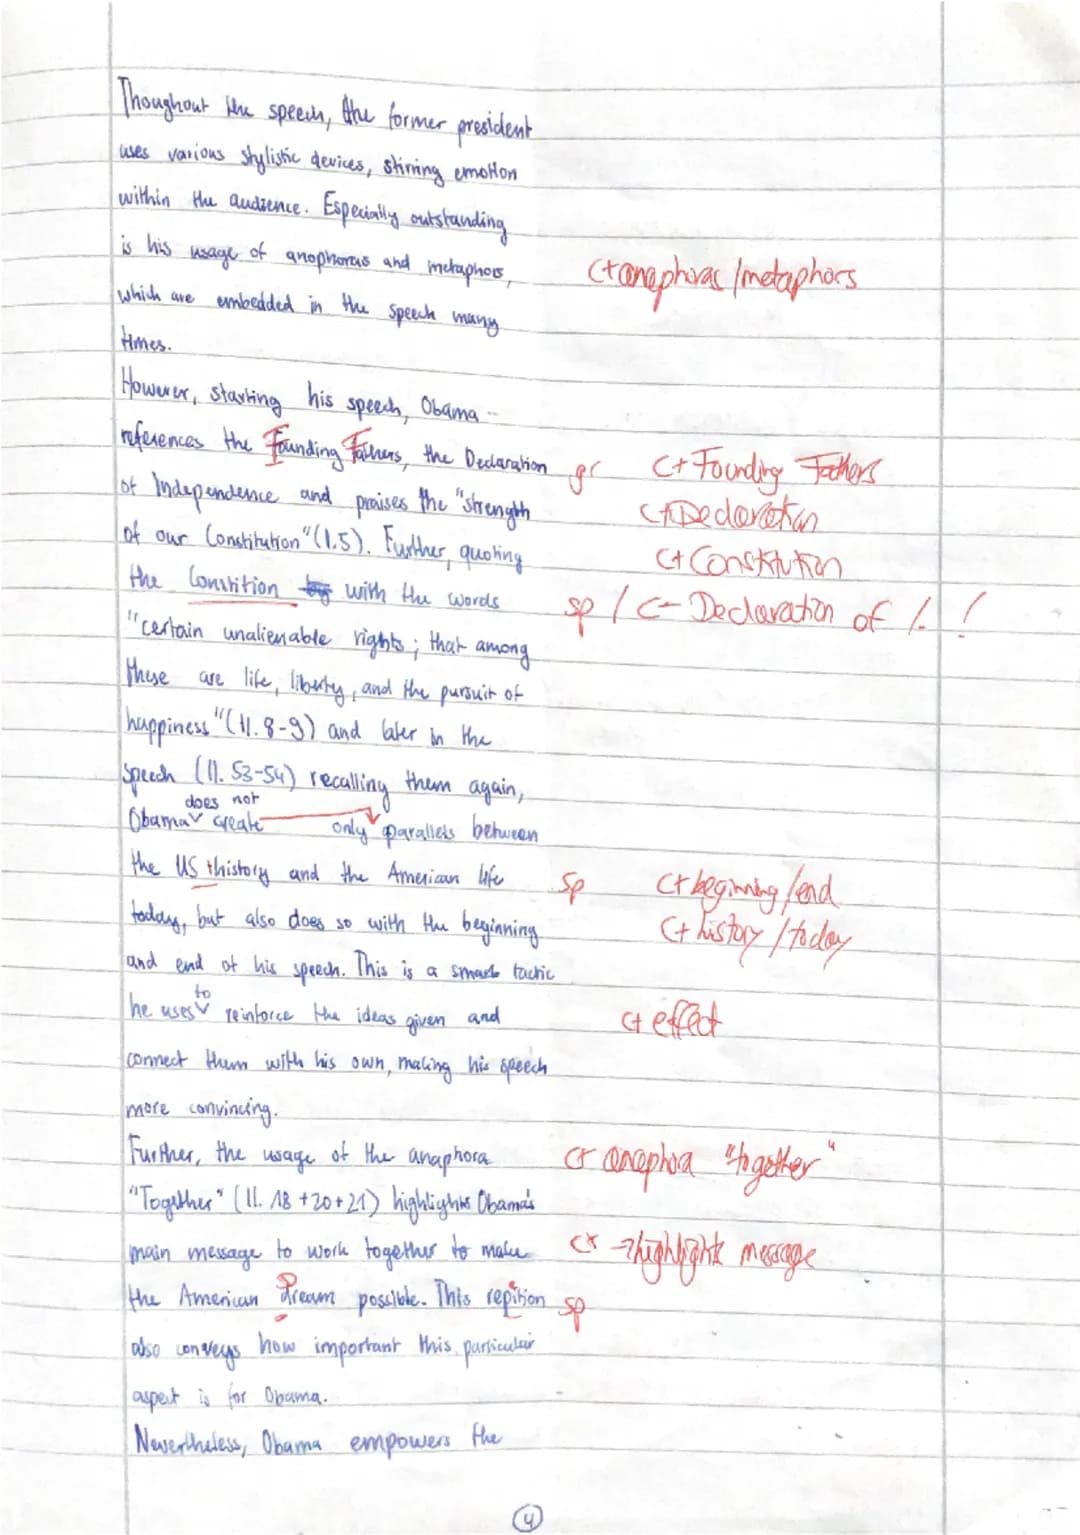 Thoughout the speech, the former president
uses various stylistic devices, stirring emotion
within the audience. Especially outstanding
is his usage of anophoras and metaphors,
C+ anaphoras / metaphors
which are embedded in the speech many
times.
However, starting his speech, Obama
references the Founding Fathers, the Declaration
gr C+ Founding Fathers
of Independence and praises the "strength
C+ Declaration
of our Constitution" (l.5). Further, quoting
C+ Constitution
the Constition with the words
sp / C- Declaration of I. !
"certain unalienable rights; that among
these are life, liberty, and the pursuit of
happiness" (ll. 8-9) and later in the
speech (ll. 53-54) recalling them again,
does not
Obama create only parallels between
the US thistory and the American life
sp C+ beginning / end
today, but also does so with the beginning
C+ history / today
and end of his speech. This is a smart tactic
to
he uses reinforce the ideas given and
C+ effect
connect them with his own, making his speech
more convincing.
Further, the usage of the anaphora
C+ anaphora "together"
"Together" (ll. 18 + 20 + 21) highlights Obama's
main message to work together to make
C+ → highlights message
the American Dream possible. This repition
sp
also conveys how important this particular
aspect is for Obama.
Nevertheless, Obama empowers the
4